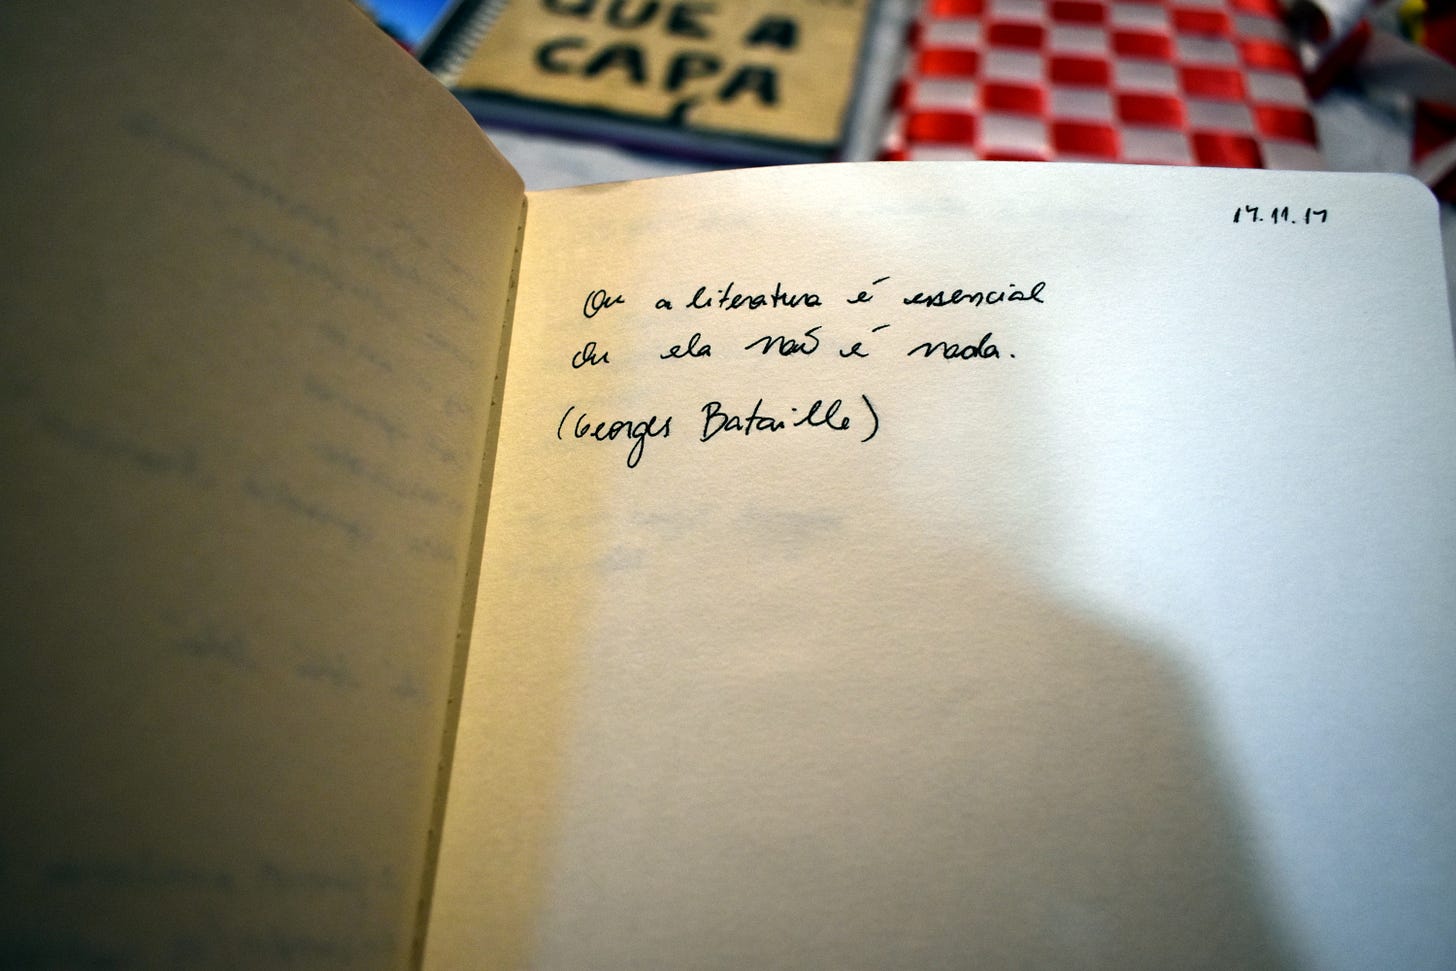 QUE A
CAPA
17.11.17
Ou a literatura é essencial
Ou ela não é nada.
(Georges Bataille)